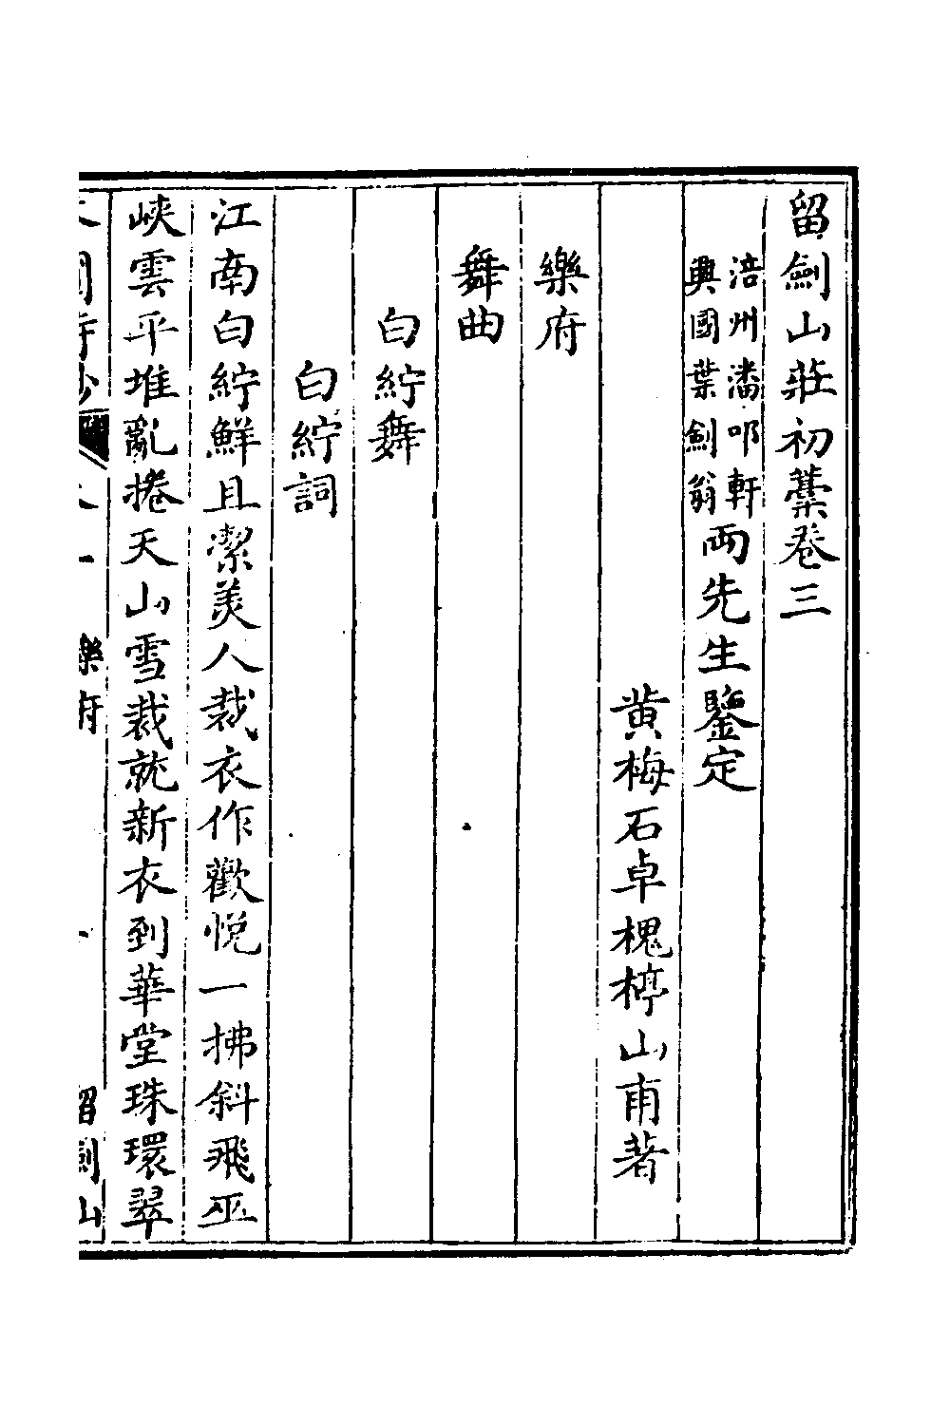 留劍山莊初藳卷三
涪州潘軒
興國葉劍翁
兩先生鑒定
黄梅石卓槐楟山甫著
樂府
舞曲
白紵舞
白紵詞
江南白紵鮮且潔美人裁衣作歡悅一拂斜飛巫
峽雲平堆亂捲天山雪裁就新衣到華堂珠環翠
樂府
留劍山